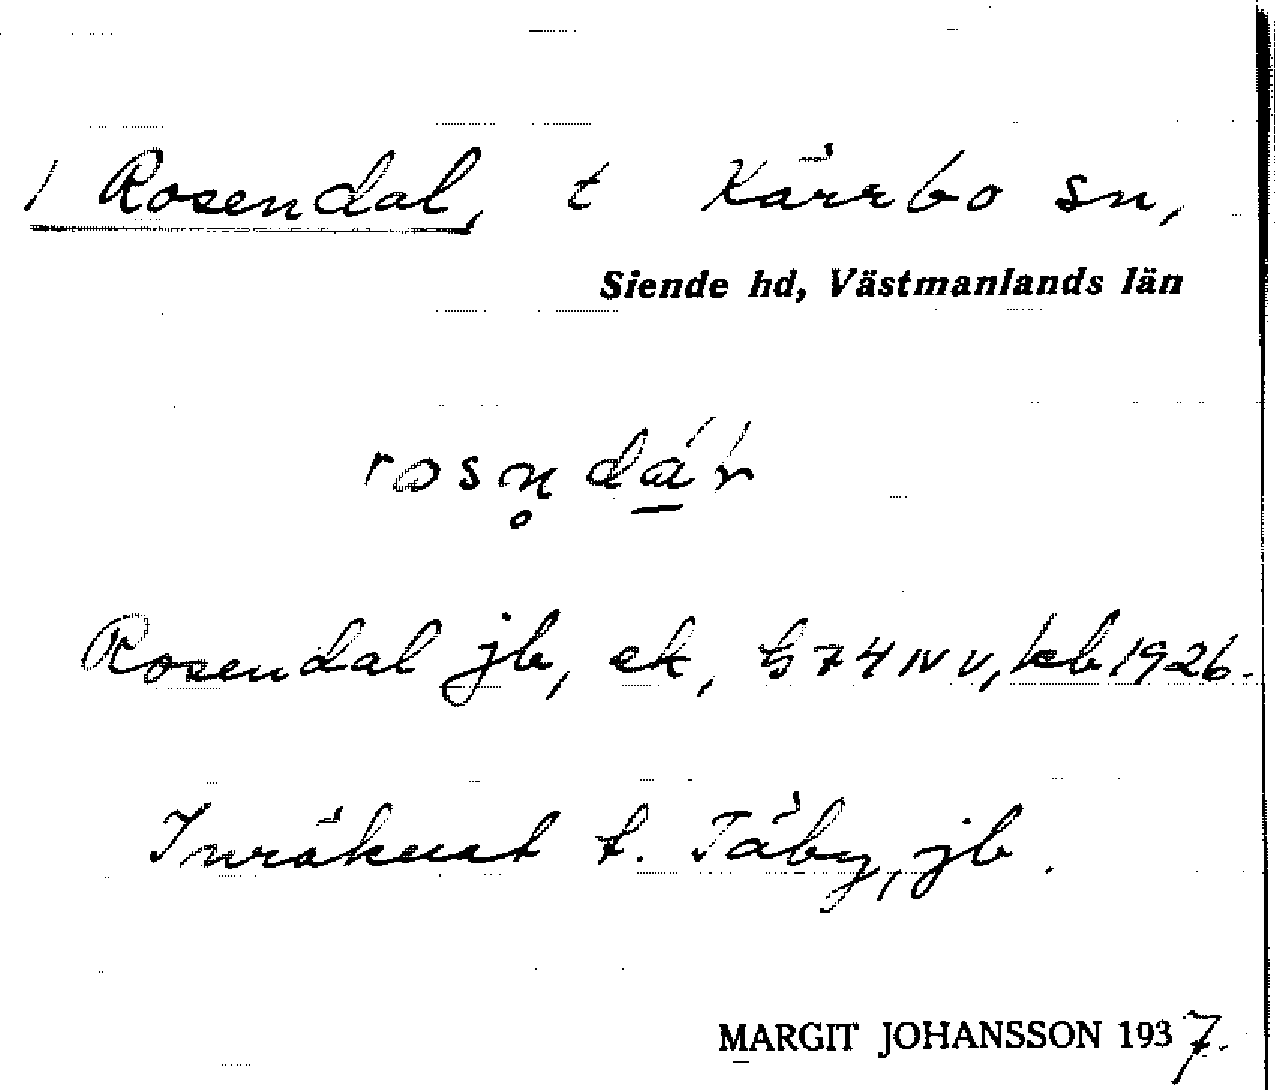 / Rosendal, t Kärrbo sn,
Siende hd, Västmanlands län
rosn̥dá̱'r
Rosendal jb, ek, § 74 IV V, kb 1926.
Inräknat t. Täby, jb.
MARGIT JOHANSSON 1937.